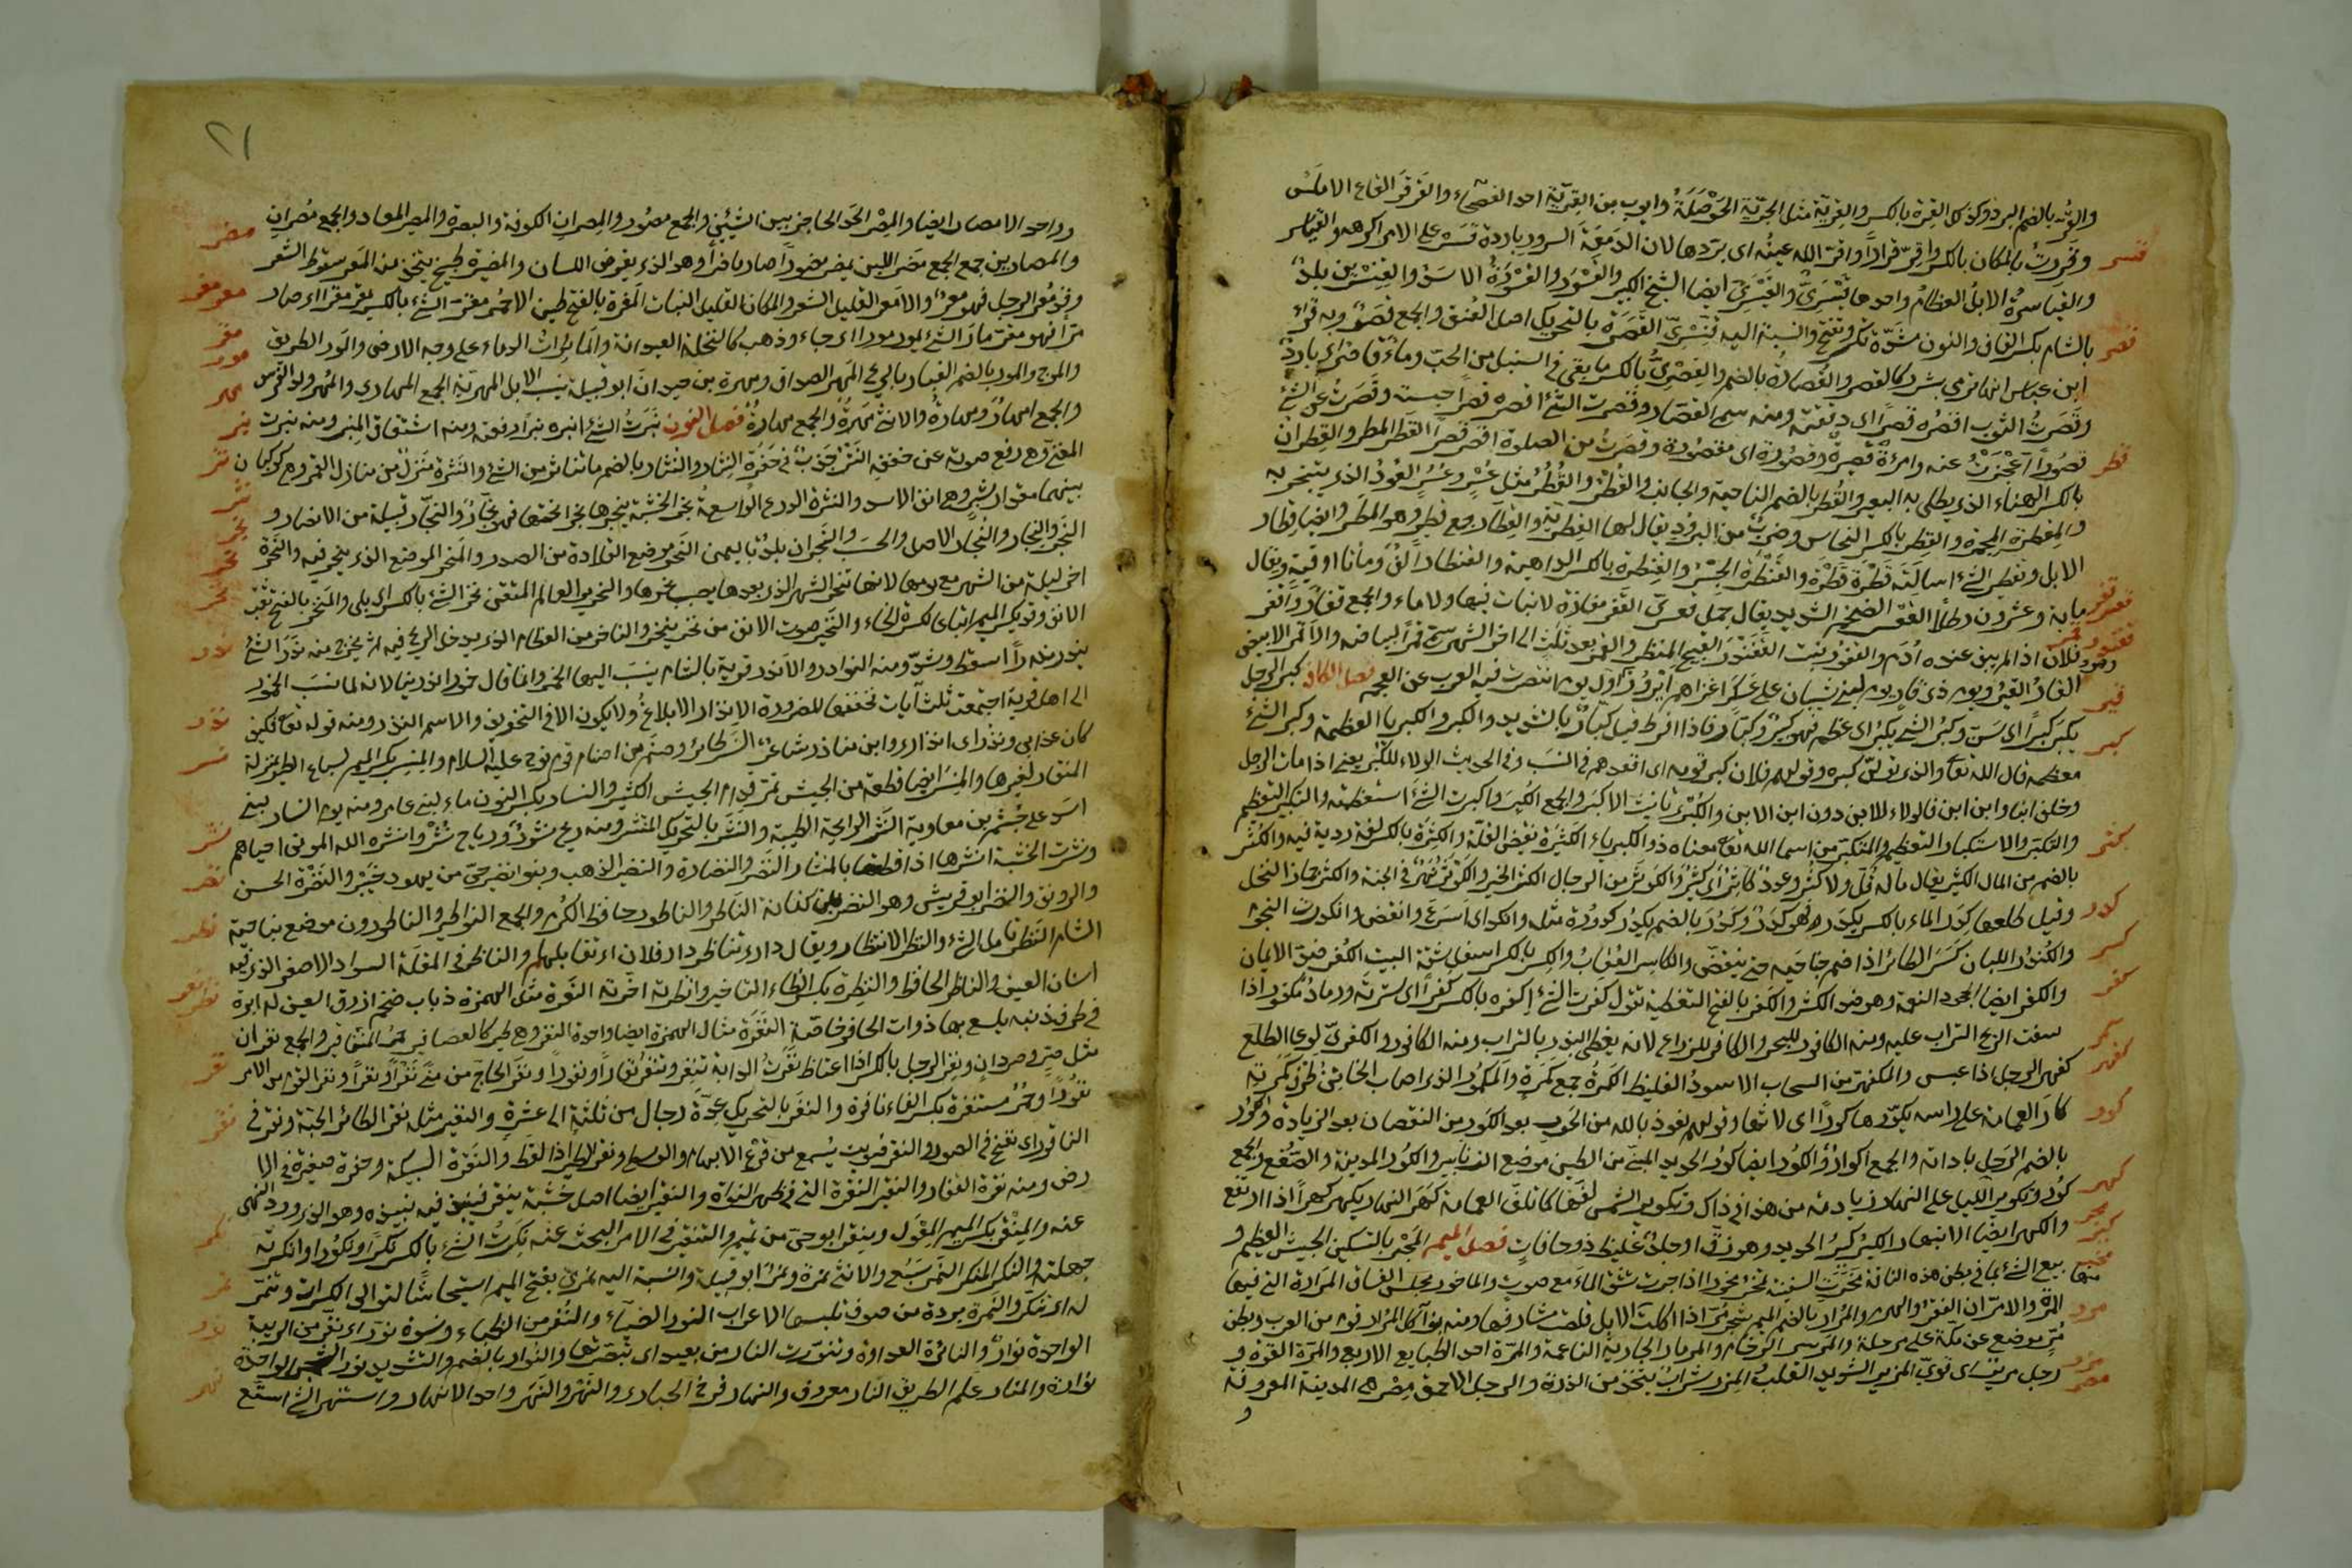 والقر بالضم البرد وكذلك القرة بالكسر والقرية مثل الجرية الحوصلة وايوب بن القرية احد الفصحاء والقرقر القاع الاملس
وقررت بالمكان بالكسر اقر قرارا واقر الله عينه اى بردها لان الدمعة السرور باردة قسر على الامر اكرهه والقياسر
والقياسرة الابل العظام واحدها قيسرى والقيسرى ايضا الشيخ الكبير والقسور والقسورة الاسد والقنسرين بلد
بالشام بكسر القاف والنون مشددة تكسر وتفتح والنسبة اليه قنسرى القصرة بالتحريك اصل العنق والجمع قصر وبه قرأ
ابن عباس انها ترمى بشرر كالقصر والقصارة بالضم والقصرى بالكسر ما يبقى فى السنبل من الحب وماء قاصر اى بارد
وقصرت الثوب اقصره قصرا اى دققته ومنه سمى القصار وقصرت الشئ اقصره قصرا حبسته وقصرت عن الشئ
قصورا عجزت عنه وامرأة قصيرة وقصورة اى مقصورة وقصرت من الصلوة اقصر قصرا القطر المطر والقطران
بالكسر الهناء الذى يطلى به البعير والقطر بالضم الناحية والجانب والقطر والقطر مثل عسر وعسر العود الذى يتبخر به
والمقطرة المجمرة والقطر بالكسر النحاس وضرب من البرود يقال لها القطرية والقطار جمع قطر وهو المطر وايضا قطار
الابل وتقطير الشئ اسالته قطرة قطرة والقنطرة الجسر والقنطرة بالكسر الداهية والقنطار الف ومأتا اوقية ويقال
ماية وعشرون رطلا القعسر الضخم الشديد يقال جمل قعسرى القفر مفازة لانبات فيها ولا ماء والجمع قفار واقفر
فلان اذا لم يبق عنده ادم القفندر القبيح المنظر والقمر بعد ثلث الى اخر الشهر سمى قمرا لبياضه والاقمر الابيض
القار القير ويوم ذى قار يوم لبنى شيبان على عسكر اغزاهم ابرويز اول يوم انتصرت فيه العرب عن العجم فصل الكاف كبر الرجل
يكبر كبرا اى سن وكبر الشئ يكبر اى عظم فهو كبير وكبار فاذا افرط قيل كبار بالتشديد والكبر والكبريا العظمة وكبر الشئ
معظمه قال الله تعا والذى تولى كبره وقولهم فلان كبر قومه اى اقعدهم فى النسب وفى الحديث الولاء للكبر يعنى اذا مات الرجل
وخلف ابنا وابن ابن فالولاء للابن دون ابن الابن والكبرى تانيث الاكبر والجمع الكبر واكبرت الشئ استعظمته والتكبير التعظيم
والتكبر والاستكبار التعظيم والمتكبر من اسماء الله تعا معناه ذو الكبرياء الكثرة نقيض القلة والكثرة بالكسر لغة ردية فيه والكثر
بالضم من المال الكثير يقال ماله قل ولا كثر وعدد كاثر اى كثير والكوثر من الرجال الكثير الخير والكوثر نهر فى الجنة والكثر جمار النخل
وقيل طلعها كدر الماء بالكسر يكدر فهو كدر وكدر بالضم يكدر كدورة مثله وانكدر اى اسرع وانقض وانكدرت النجوم
والكندر اللبان كسر الطائر اذا ضم جناحيه حتى ينقض والكاسر العقاب والكسر بالكسر اسفل شقة البيت الكفر ضد الايمان
والكفر ايضا الجحود النعمة وهو ضد الشكر والكفر بالفتح التغطية تقول كفرت الشئ اكفره بالكسر كفرا اى سترته ورماد مكفور اذا
سفت الريح التراب عليه ومنه الكافور للبحر والكافر للزراع لانه يغطى البذر بالتراب ومنه الكافور والكفرى لوعاء الطلع
كفهر الرجل اذا عبس والمكفهر من السحاب الاسود الغليظ الكمرة جمع كمرة والمكمور الذى اصاب الخاتن طرف كمرته
كار العمامة على راسه يكورها كورا اى لاثها وقولهم نعوذ بالله من الحور بعد الكور من النقصان بعد الزيادة والكور
بالضم الرحل باداته والجمع اكوار والكور ايضا كور الحديد المبنى من الطين موضع الزنابير والكور المدينة والصقع والجمع
كور وتكوير الليل على النهار زيادته من هذا فى ذاك وتكوير الشمس لفها كما تلف العمامة كهر النهار يكهر كهرا اذا ارتفع
والكهر ايضا الانتهار الكير كير الحديد وهو زق او جلد غليظ ذو حافات فصل الميم المجر بالتسكين الجيش العظيم و
بيع الشئ بما فى بطن هذه الناقة مخرت السفينة تمخر مخرا اذا جرت تشق الماء مع صوت والماخور مجلس الفساق المرارة التى فيها
المرة والامران الفقر والهرم والمرار بالضم الميم شجر مر اذا اكلت الابل قلصت مشافرها ومنه بنو آكل المرار قوم من العرب وبطن
مر موضع عن مكة على مرحلة والمرمر الرخام والمرمار الجارية الناعمة والمرة احد الطبايع الاربع والمرة القوة و
رجل مرير اى قوى المزير الشديد القلب المزر شراب يتخذ من الذرة والرجل الاحمق مصر هى المدينة المعروفة
و
قسر
قصر
قطر
قعسر
قفر
قفندر
قمر
قير
كبر
كثر
كدر
كسر
كفر
كمر
كفهر
كور
كهر
كير
مجر
مخر
مرر
مزر
مصر
٢١
وواحد الامصار ايضا والمصر الحد الحاجز بين الشيئين والجمع مصور والمصران الكوفة والبصرة والمصير المعاد والجمع مصران
والمصارين جمع الجمع مضر اللبن يمضر مضورا صار ماضرا وهو الذى يقرض اللسان والمضيرة طبيخ يتخذ منه المعر سقوط الشعر
وقد معر الرجل فهو معر والامعر القليل الشعر والمكان القليل النبات المغرة بالفتح طين الاحمر مقر الشئ بالكسر يمقر مقرا اى صار
مرا فهو مقر مار الشئ يمور مورا اى جاء وذهب كالنخلة العيدانة والمائرات الدماء على وجه الارض والمور الطريق
والموج والمور بالضم الغبار بالريح المهر الصداق ومهرة بن حيدان ابو قبيلة ينسب الابل المهرية الجمع المهارى والمهر ولد الفرس
والجمع امهار ومهارة والانثى مهرة والجمع مهارة فصل النون نبرت الشئ انبره نبرا رفعته ومنه اشتقاق المنبر ومنه نبرت
المغنى وهو رفع صوته عن خفض النتر جذب فى حفوة النثار والنثار بالضم ما تناثر من الشئ والنثرة منزل من منازل القمر وهى كوكبان
بينهما مقدار شبر وهما انف الاسد والنثرة الدرع الواسعة نجر الخشبة ينجرها نجرا نحتها فهو نجار والنجار قبيلة من الانصار و
النجر والنجار والنجار الاصل والحسب والنجران بلد باليمن النحر موضع القلادة من الصدر والمنحر الموضع الذى ينحر فيه والنحرة
اخر ليلة من الشهر مع يومها لانها تنحر الشهر الذى بعدها يصيب نحرها والنحرير العالم المتقن نخر الشئ بالكسر اى بلى والمنخر بالفتح ثقب
الانف وقد يكسر الميم اتباعا لكسرة الخاء والنخير صوت الانف من نخر ينخر والناخر من العظام الذى يدخل الريح فيه ثم يخرج منه ندر الشئ
يندر ندرا اسقط وشذ ومنه النوادر والاندر قرية بالشام ينسب اليها الخمر وانما قال خمور الاندرينا لانه لما نسب الخمور
الى اهل قرية اجتمعت ثلث آيات فخففها للضرورة الانذار الابلاغ ولا يكون الا فى التخويف والاسم النذر ومنه قوله تعا فكيف
كان عذابى ونذر اى انذارى وابن مناذر شاعر النسر طائر وصنم من اصنام قوم نوح عليه السلام والمنسر بكسر الميم لسباع الطير بمنزلة
المنقار لغيرها والمنسر ايضا قطعة من الجيش تمر قدام الجيش الكثير والنسار بكسر النون ماء لبنى عامر ومنه يوم النسار لبنى
اسد على جشم بن معاوية النشر الرايحة الطيبة والنشر بالتحريك المنتشر ومنه ريح نشور ورياح نشر وانشره الله الموتى احياهم
ونشرت الخشبة انشرها اذا قطعتها بالمنشار النضر والنضارة والنضير الذهب وبنو النضير حى من يهود خيبر والنضرة الحسن
والرونق والنضر ابو قريش وهو النضر بن كنانة الناطر والناطور حافظ الكرم والجمع النواطير والناطرون موضع بناحية
الشام النظر تامل الشئ والنظر الانتظار ويقال دارى تناظر دار فلان اى تقابلها والناظر فى المقلة السواد الاصغر الذى فيه
انسان العين والناظر الحافظ والنظرة بكسر الظاء التاخير وانظرته اخرته النعرة مثال الهمزة ذباب ضخم ازرق العين له ابرة
فى طرف ذنبه يلسع بها ذوات الحافر خاصة النغرة مثال الهمزة ايضا واحدة النغر وهى طير كالعصافير حمر المناقير والجمع نغران
مثل صرد وصردان ونغر الرجل بالكسر اذا اغتاظ نفرت الدابة تنفر وتنفر نفارا ونفورا ونفر الحاج من منى نفرا ونفرا ونفر القوم من الامر
نفورا وحمر مستنفرة بكسر الفاء نافرة والنفر بالتحريك عدة رجال من ثلثة الى عشرة والنفير مثله نقر الطائر الحبة ونقر فى
الناقور اى نفخ فى الصور والنقر صويت يسمع من قرع الابهام والوسطى ونقر الطير اذا لقط والنقرة السبيكة وحفرة صغيرة فى الا
رض ومنه نقرة القفا والنقير النقرة التى فى ظهر النواة والنقير ايضا اصل خشبة ينقر فينبذ فيه نبيذه وهو الذى ورد النهى
عنه والمنقر بكسر الميم المعول ومنقر ابو حى من تميم والتنقير فى الامر البحث عنه نكرت الشئ بالكسر نكرا ونكورا وانكرته
جهلته والنكر المنكر النمر سبع والانثى نمرة ونمر ابو قبيلة والنسبة اليه نمرى بفتح الميم استيحاشا لتوالى الكسرات وتنمر
له اى تنكر والنمرة بردة من صوف تلبسها الاعراب النور الضياء والنفر من الظباء ونسوة نور اى نفر من الريبة
الواحدة نوار والنائرة العداوة وتنورت النار من بعيد اى تبصرتها والنوار بالضم والتشديد نور الشجر الواحدة
نوارة والمنار علم الطريق النار معروف والنهار فرخ الحبارى والنهر والنهر واحد الانهار واستنهر الشئ اتسع
مضر
معر مغر
مقر
مور
مهر
نبر
نتر
نثر
نجر
نحر
نخر
ندر
نذر
نسر
نشر
نضر
نطر
نظر نعر
نغر
نفر
نكر
نمر
نور
نهر